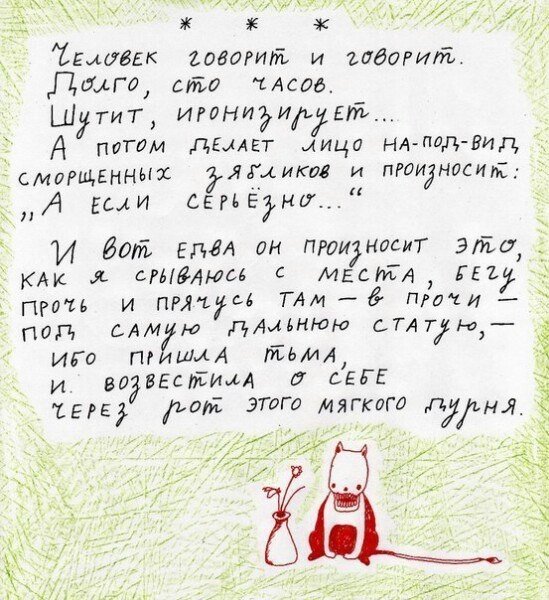 * * *
Человек говорит и говорит.
Долго, сто часов.
Шутит, иронизирует...
А потом делает лицо на-под-вид
сморщенных зябликов и произносит:
„А если серьёзно..."
И вот едва он произносит это,
как я срываюсь с места, бегу
прочь и прячусь там — в прочи —
под самую дальнюю статую, —
ибо пришла тьма,
и возвестила о себе
через рот этого мягкого дурня.